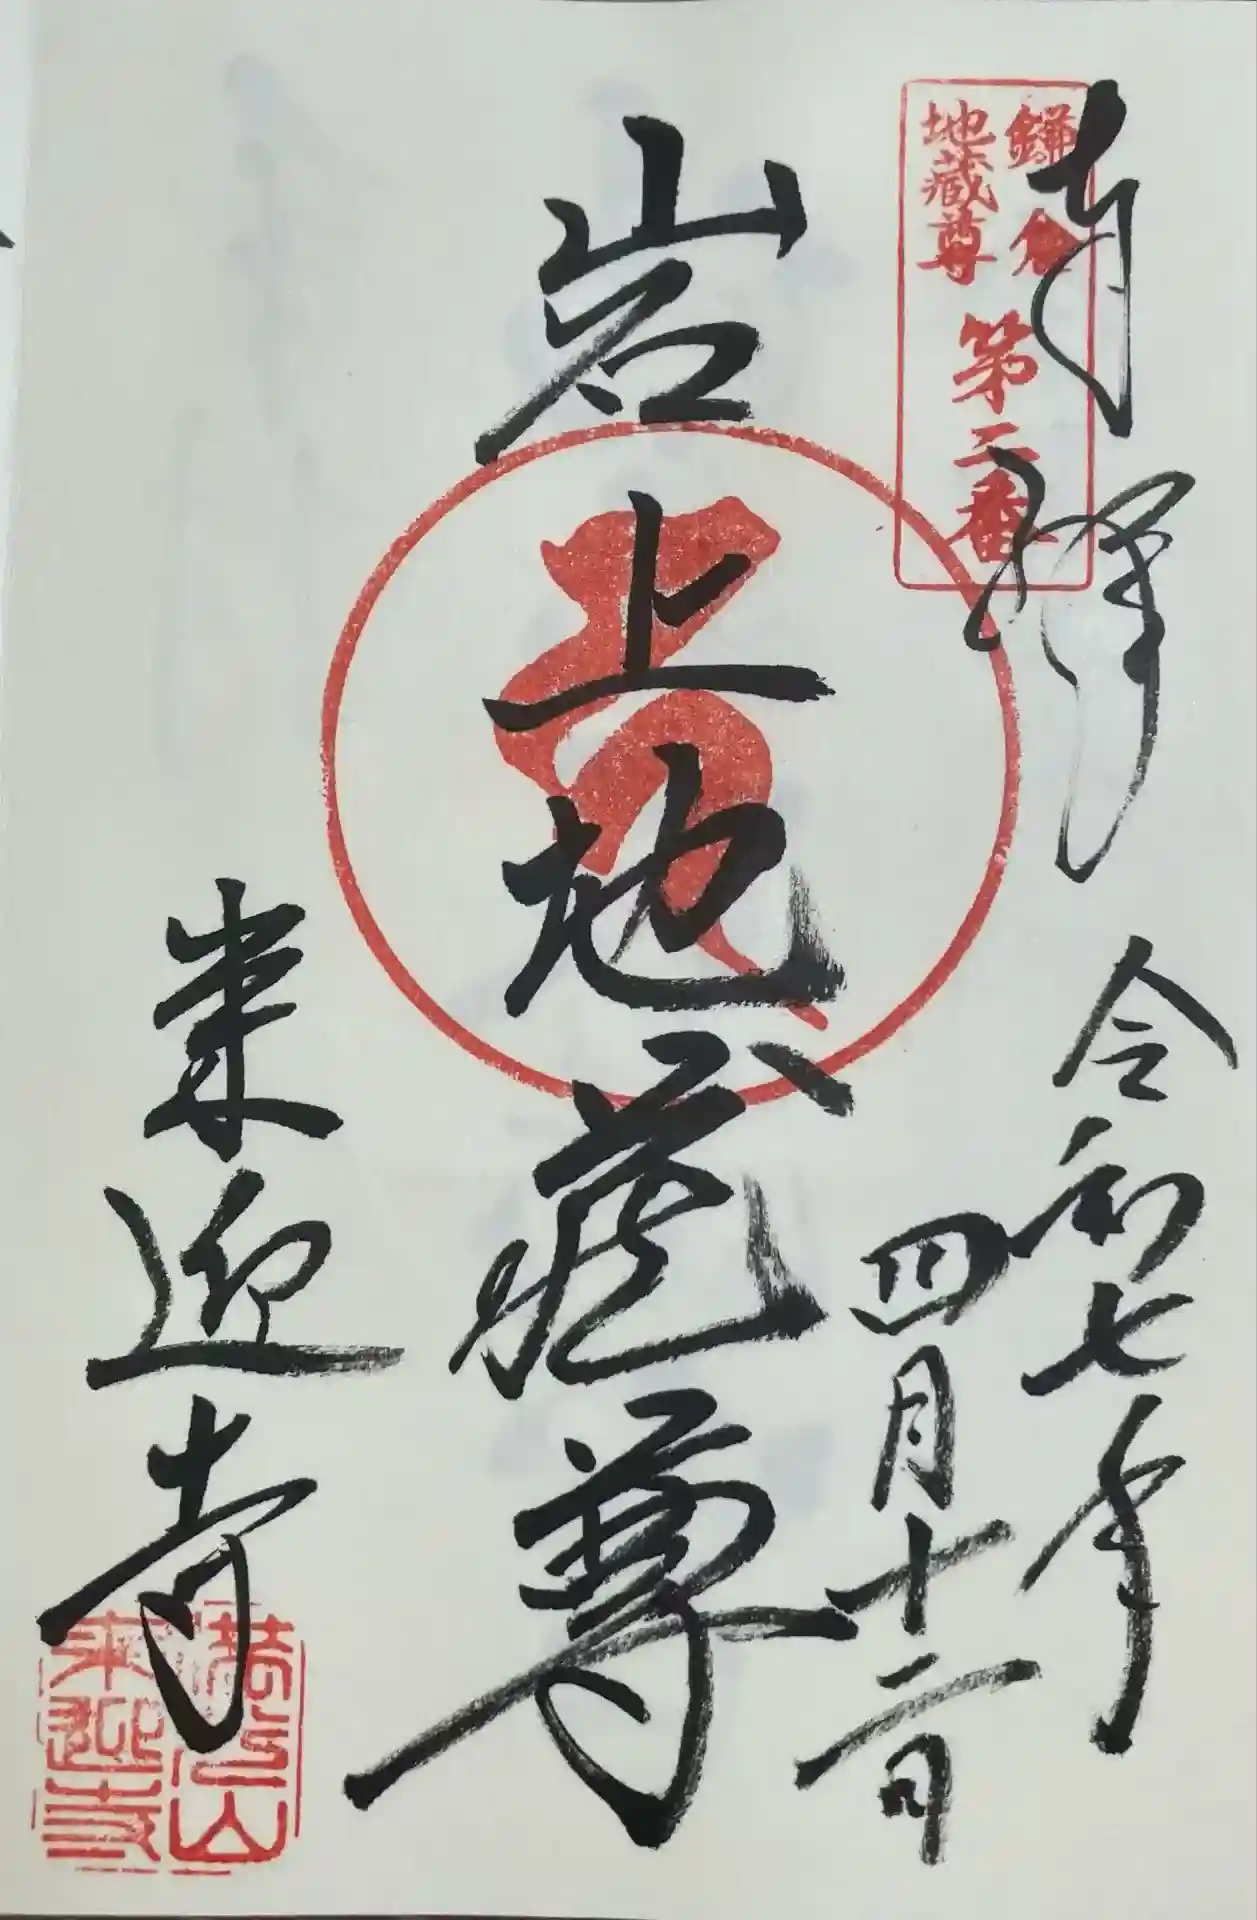 奉拝
令和七年
四月十二日
鎌倉
地蔵尊
第二番
岩上地蔵尊
来迎寺
満岡山
来迎寺